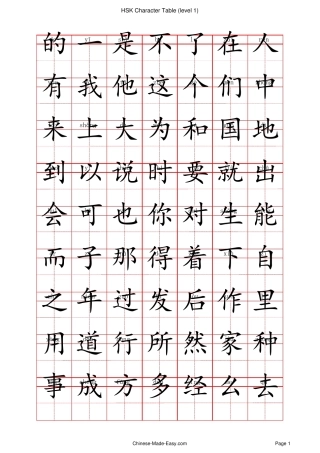 HSK Character Table (level 1)
的一是不了在人
有我他这个们中
来上大为和国地
到以说时要就出
会可也你对生能
而子那得着下自
之年过发后作里
用道行所然家种
事成方多经么去
Chinese-Made-Easy.com Page 1